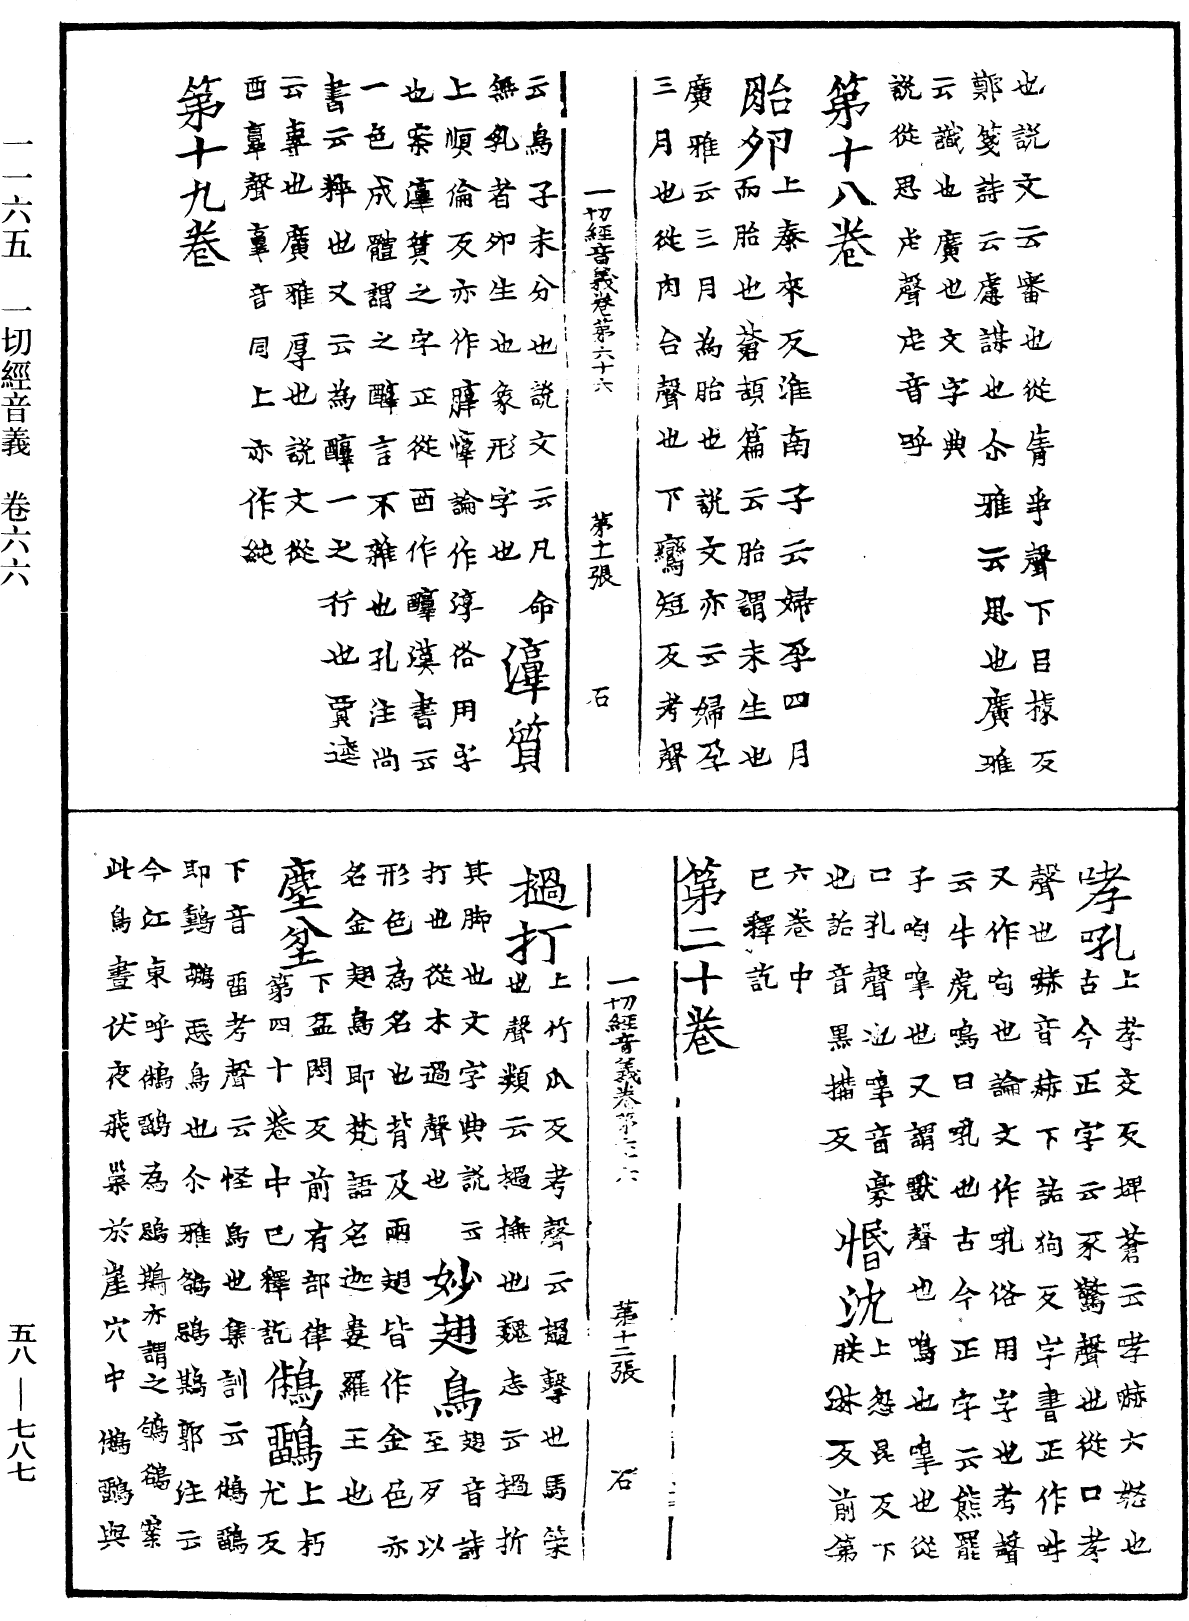 一一六五 一切經音義 卷六六
五八—七八七
也說文云審也從言爭聲下日據反
鄭箋詩云慮謀也尒雅云思也廣雅
云議也廣也文字典
說從思虍聲虍音呼
第十八卷
胎卵上泰來反淮南子云婦孕四月
而胎也蒼頡篇云胎謂未生也
廣雅云三月為胎也說文亦云婦孕
三月也從肉台聲也下鸞短反考聲
一切經音義卷第六十六 第十一張 石
云鳥子未分也說文云凡命
無乳者卵生也象形字也 淳質
上順倫反亦作醇惇論作淳俗用字
也案淳質之字正從酉作醇漢書云
一色成體謂之醇言不雜也孔注尚
書云粹也又云為醇一之行也賈逵
云專也廣雅厚也說文從
酉𦎧聲𦎧音同上亦作純
第十九卷
哮吼上孝交反埤蒼云哮嚇大怒也
古今正字云豕驚聲也從口孝
聲也嚇音赫下詬狗反字書正作吽
又作呴也論文作吼俗用字也考聲
云牛虎鳴曰吼也古今正字云熊羆
子呴嘷也又謂獸聲也鳴也嘷也從
口孔聲也嘷音豪 惛沈上忽昆反下
也詬音黑搆反 朕淋反前第
六卷中
已釋訖
第二十卷
一切經音義卷第六十六 第十二張 石
撾打上竹瓜反考聲云撾擊也馬策
也聲類云撾撫也魏志云撾折
其脚也文字典說云
打也從木過聲也 妙翅鳥翅音詩
至反以
形色為名也背及兩翅皆作金色亦
名金翅鳥即梵語名迦婁羅王也
塵坌下盆悶反前有部律
第四十卷中已釋訖 鵂鶹上朽
尤反
下音留考聲云怪鳥也集訓云鵂鶹
即鵄鵂惡鳥也尒雅鵅鵋䳢郭注云
今江東呼鵂鶹為鵋䳢亦謂之鴝鵒案
此鳥晝伏夜飛巢於崖穴中鵂鶹與